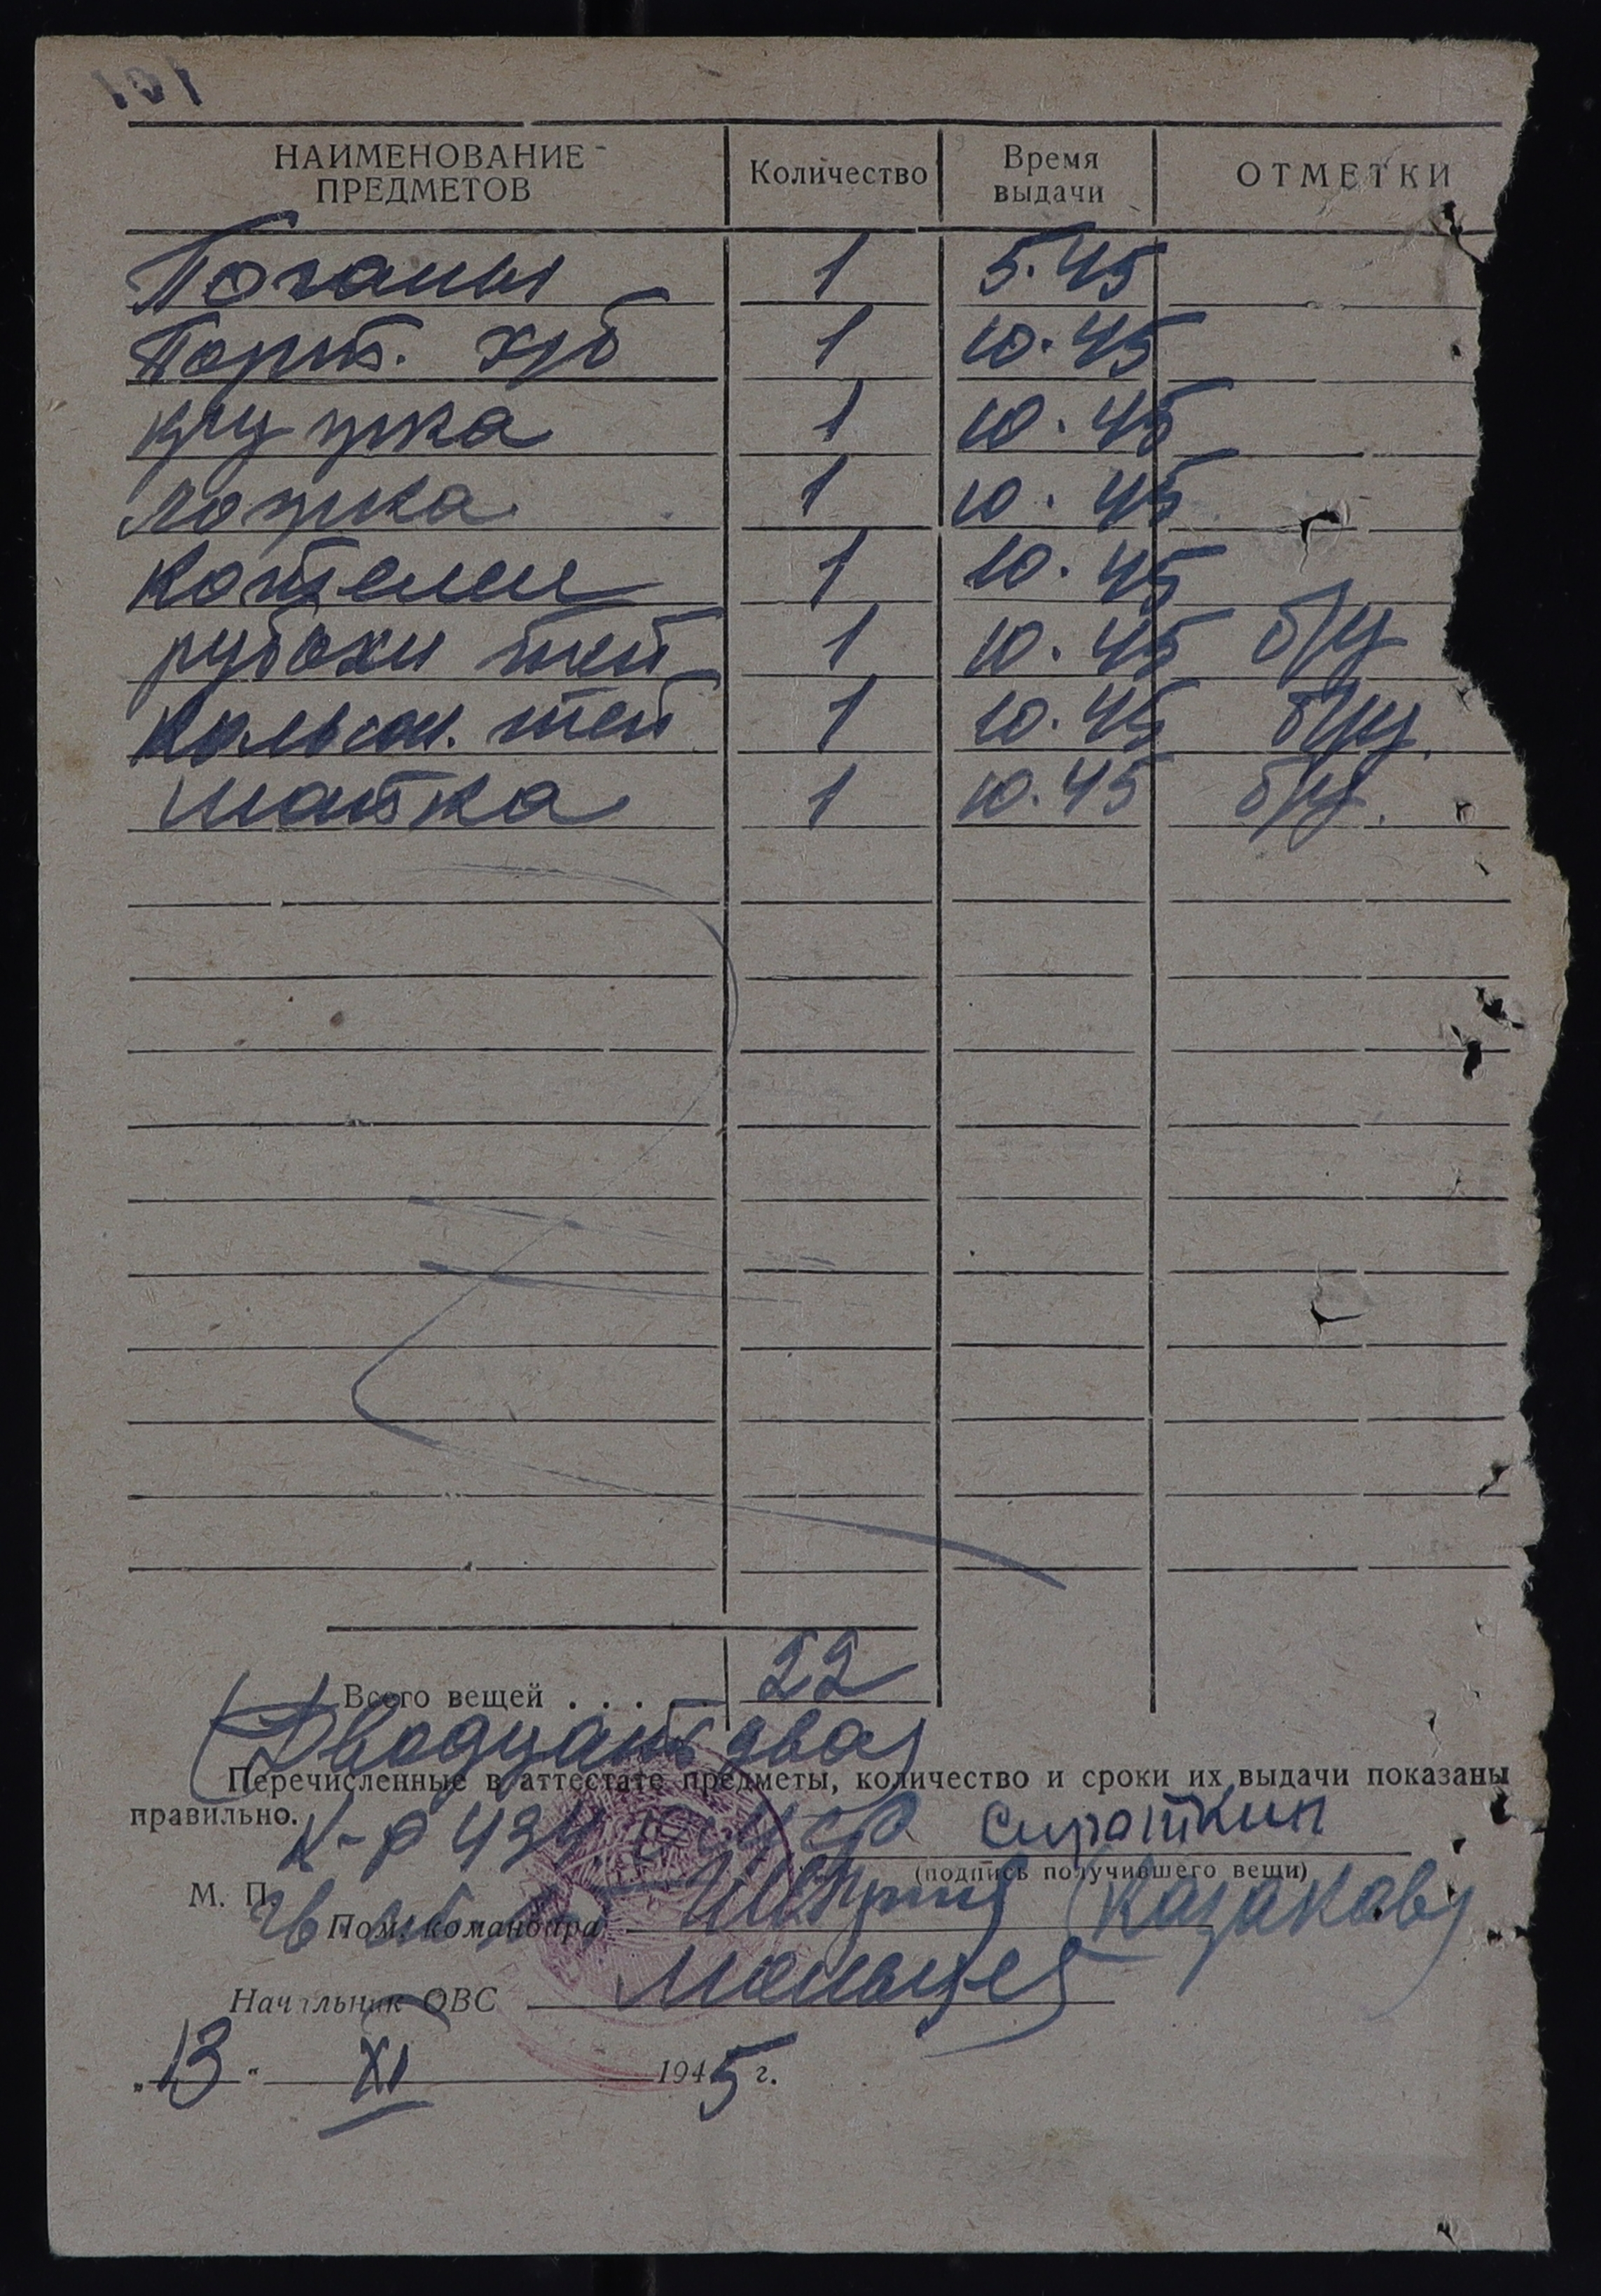 101
НАИМЕНОВАНИЕ ПРЕДМЕТОВ Количество Время выдачи ОТМЕТКИ
Погоны 1 5.45
Порт. х/б 1 10.45
кружка 1 10.45
ложка 1 10.45
Котелок 1 10.45
рубахи теп 1 10.45 б/у
Кальсон. теп 1 10.45 б/у.
шапка 1 10.45 б/у.
Всего вещей . . . . 22
(Двадцать два)
Перечисленные в аттестате предметы, количество и сроки их выдачи показаны
правильно.
К-р 434 Сироткин
(подпись получившего вещи)
М. П.
Пом. командира (Казаков)
Начальник ОВС
„13“ XI 1945 г.